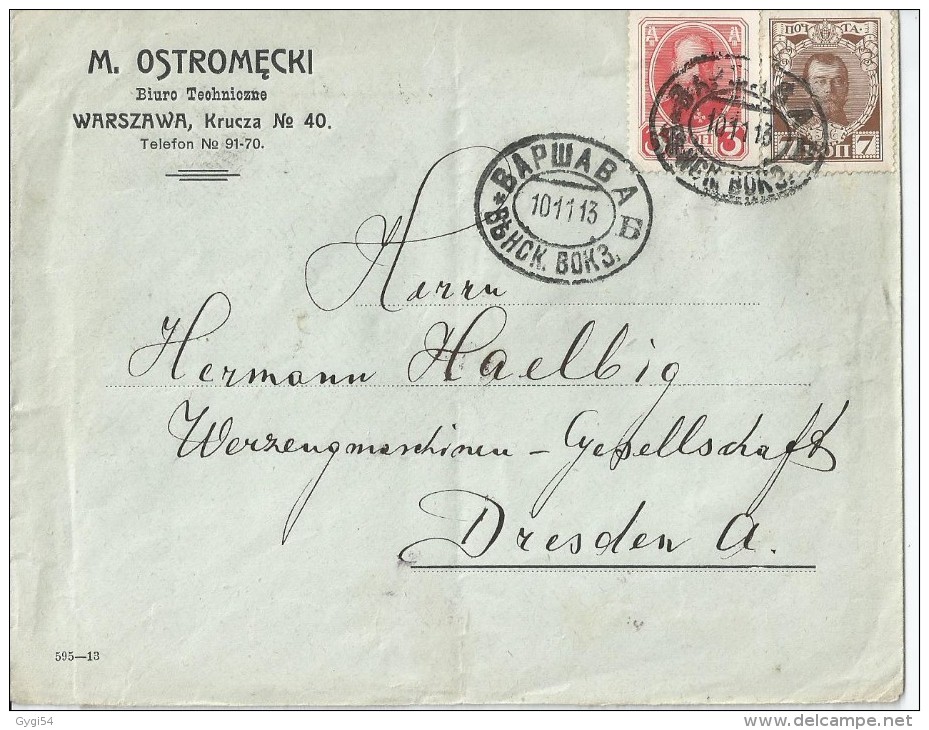 M. OSTROMĘCKI
Biuro Techniczne
WARSZAWA, Krucza № 40.
Telefon № 91-70.
ПОЧТА
3
КОП 7
10 11 13
ВОКЗ.
ВАРШАВА Б
10 11 13
ВѢНСК. ВОКЗ.
Herrn
Hermann Haelbig
Werzeugmaschinen – Gesellschaft
Dresden A.
595—13
Gygi54
www.delcampe.net